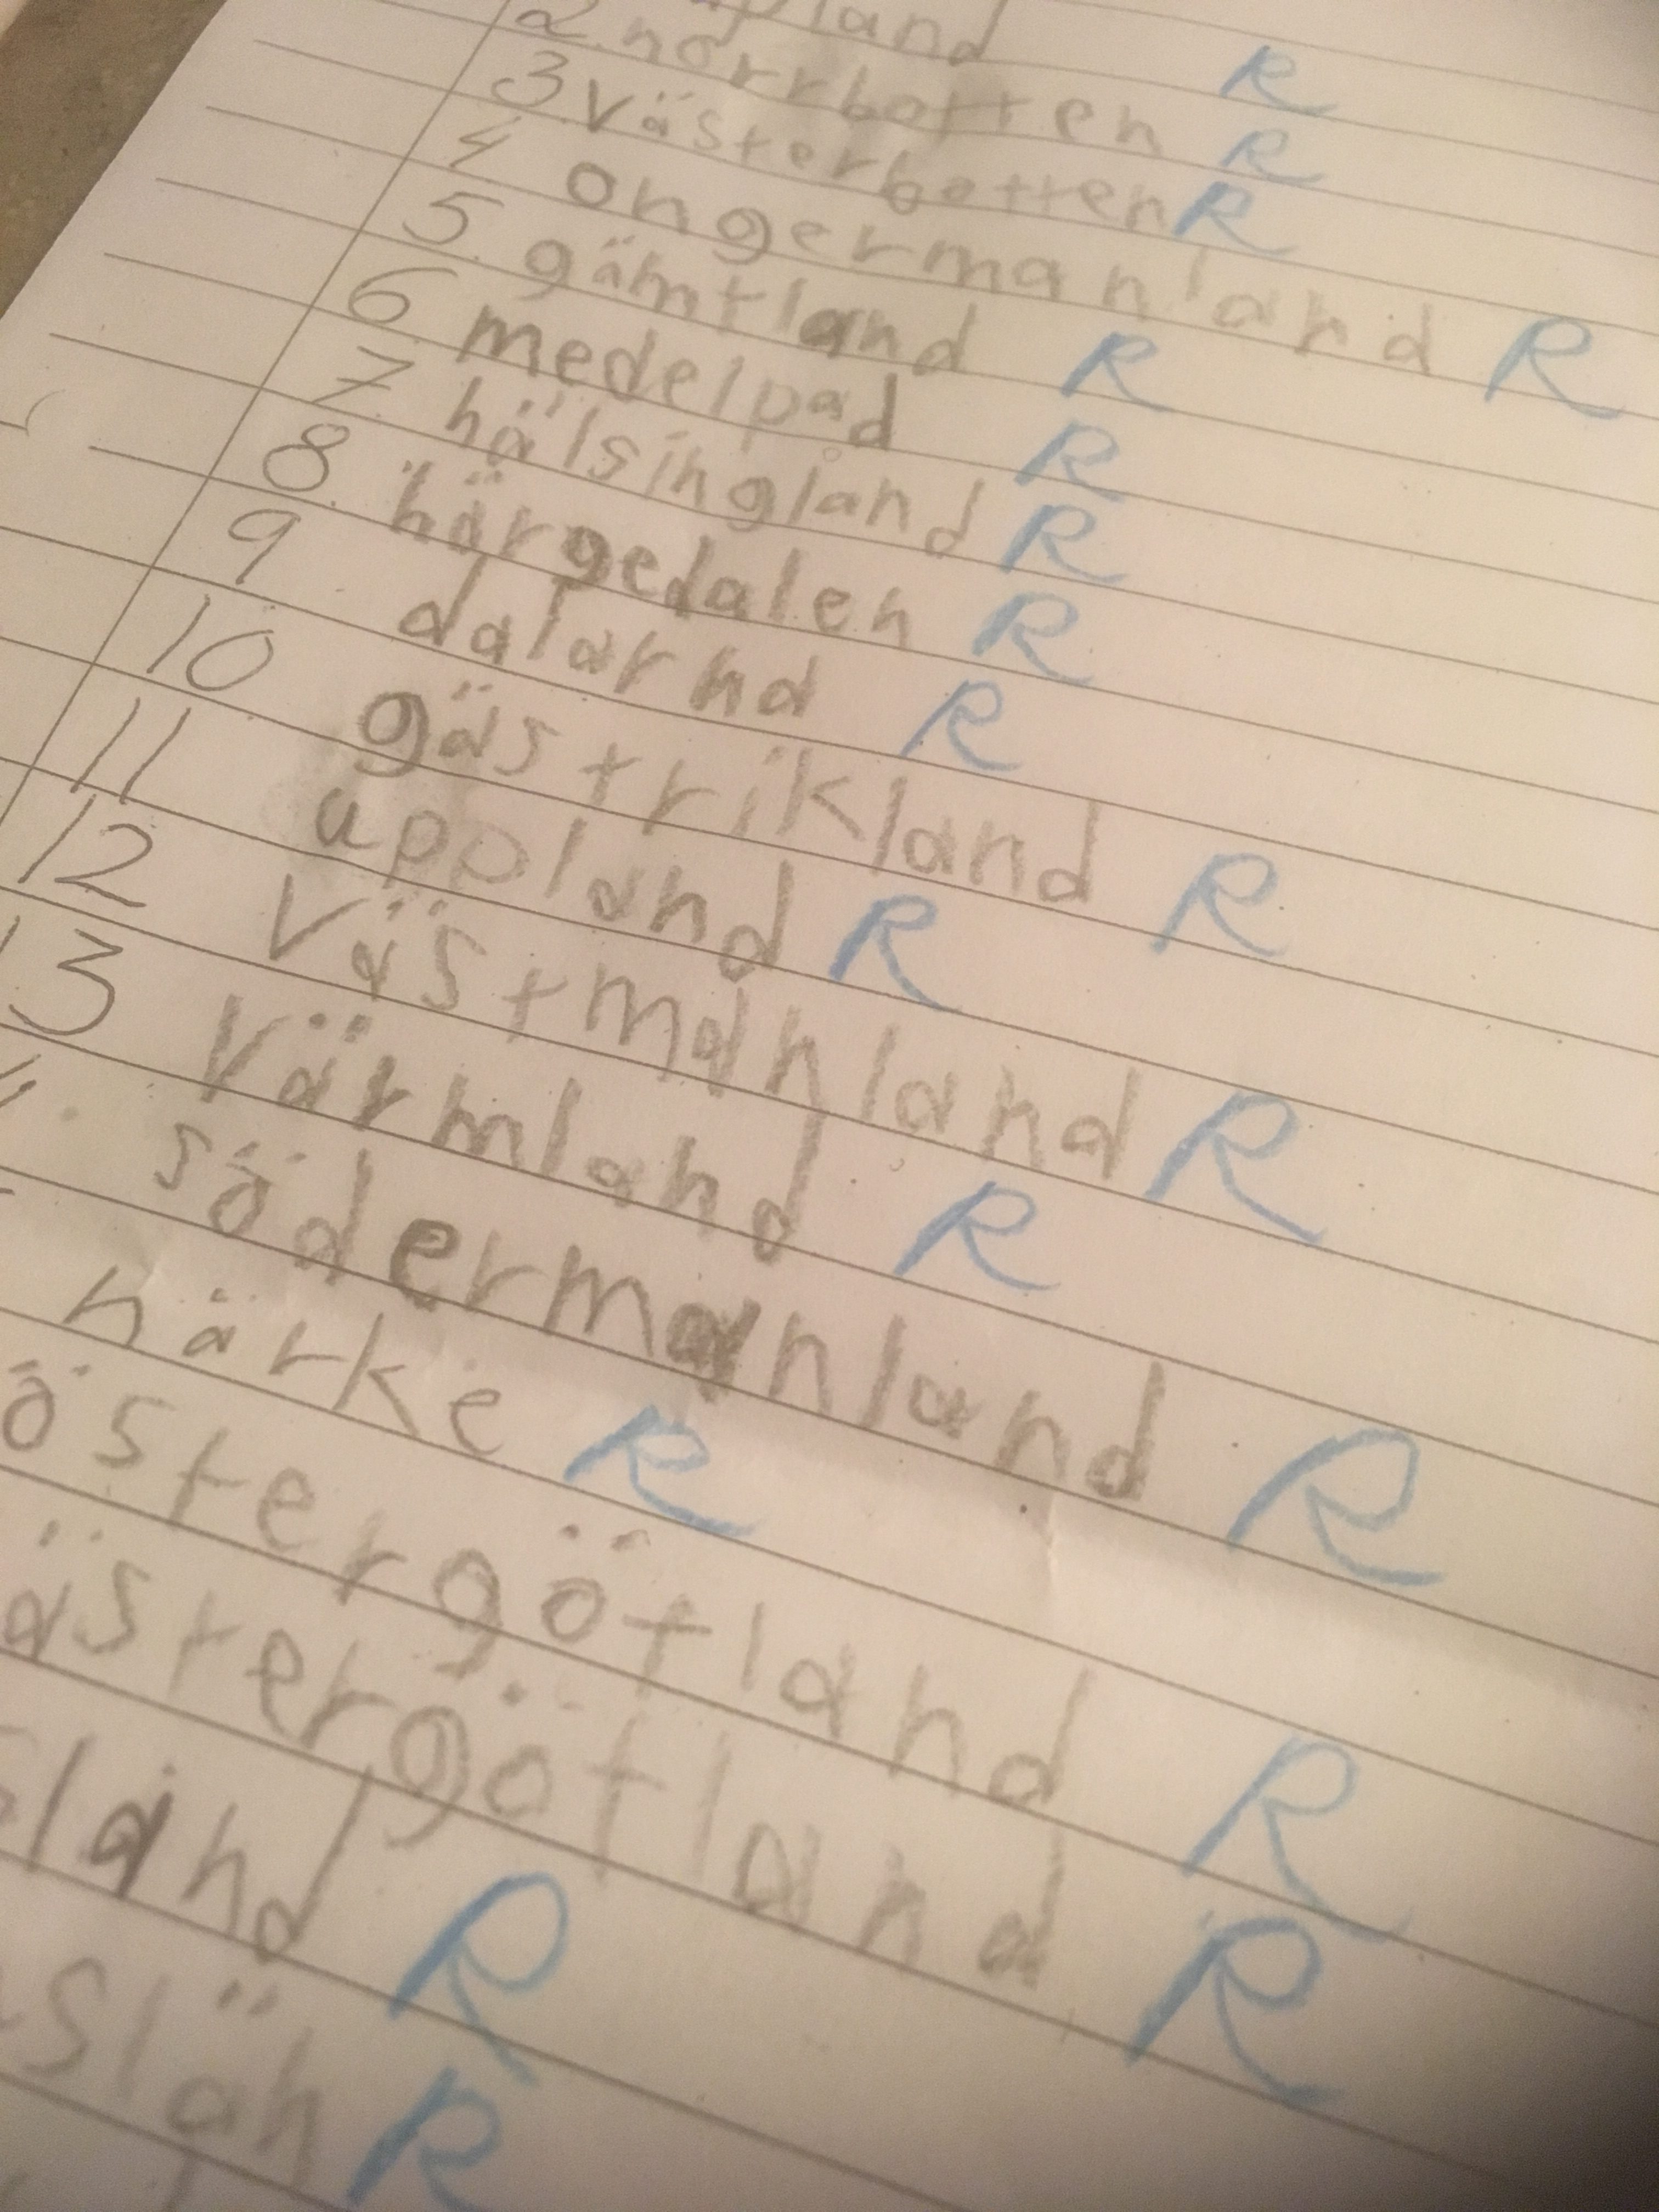 land R
2. norrbotten R
3 västerbotten R
4 ongermanland R
5. gämtland R
6 medelpad R
7. hälsingland R
8. härgedalen R
9 dalarna R
10 gästrikland R
11 uppland R
12 västmanland R
13 värmland R
södermanland R
närke R
östergötland R
ästergötland R
sland R
slän R